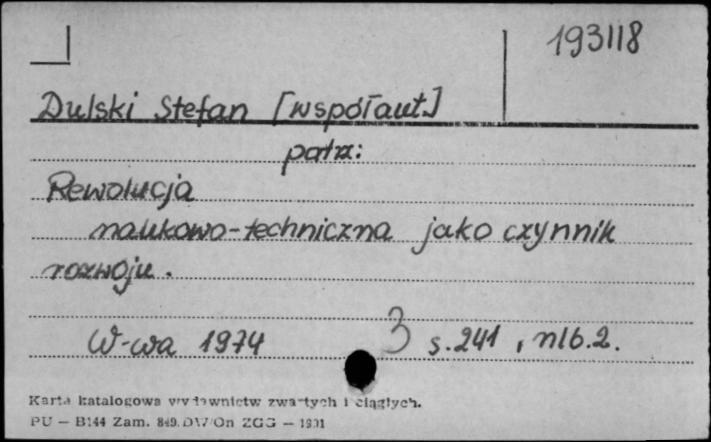 193118
Dulski Stefan [współaut.]
patrz:
Rewolucja
naukowo-techniczna jako czynnik
rozwoju.
W-wa 1974 3 s.241, nlb.2.
Karta katalogowa wydawnictw zwartych i ciągłych.
PU — B144 Zam. 849. DW/On ZGG —